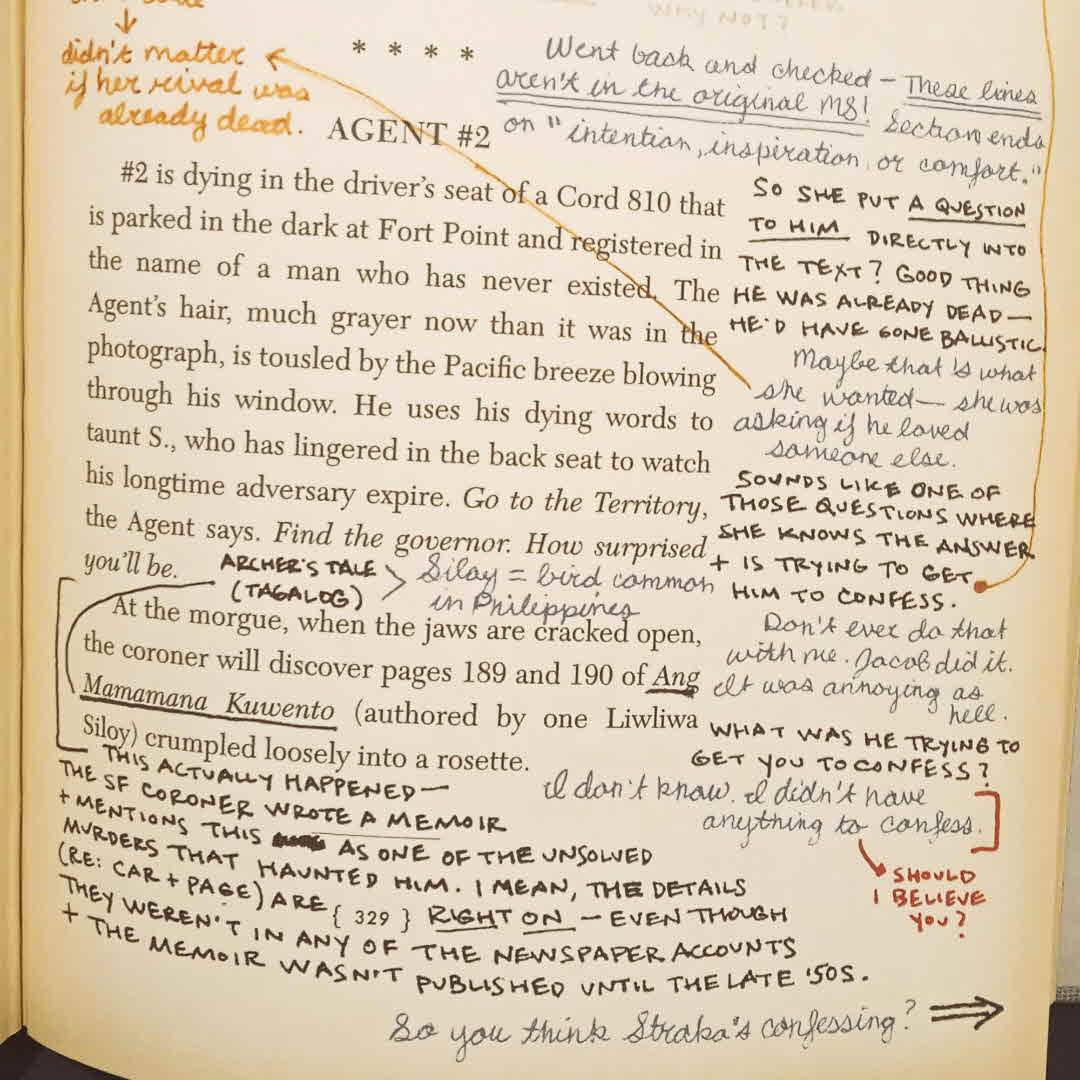 didn't matter
if her rival was
already dead.
* * * *
Went back and checked – These lines
aren't in the original MS! Section ends
on "intention, inspiration, or comfort."
AGENT #2
#2 is dying in the driver's seat of a Cord 810 that
is parked in the dark at Fort Point and registered in
the name of a man who has never existed. The
Agent's hair, much grayer now than it was in the
photograph, is tousled by the Pacific breeze blowing
through his window. He uses his dying words to
taunt S., who has lingered in the back seat to watch
his longtime adversary expire. Go to the Territory,
the Agent says. Find the governor. How surprised
you'll be.
SO SHE PUT A QUESTION
TO HIM DIRECTLY INTO
THE TEXT? GOOD THING
HE WAS ALREADY DEAD—
HE'D HAVE GONE BALLISTIC.
Maybe that's what
she wanted— she was
asking if he loved
someone else.
SOUNDS LIKE ONE OF
THOSE QUESTIONS WHERE
SHE KNOWS THE ANSWER
+ IS TRYING TO GET
HIM TO CONFESS.
Don't ever do that
with me. Jacob did it.
It was annoying as
hell.
WHAT WAS HE TRYING TO
GET YOU TO CONFESS?
I don't know. I didn't have
anything to confess.
SHOULD
I BELIEVE
YOU?
ARCHER'S TALE
(TAGALOG)
Siloy = bird common
in Philippines
At the morgue, when the jaws are cracked open,
the coroner will discover pages 189 and 190 of Ang
Mamamana Kuwento (authored by one Liwliwa
Siloy) crumpled loosely into a rosette.
THIS ACTUALLY HAPPENED—
THE SF CORONER WROTE A MEMOIR
+ MENTIONS THIS AS ONE OF THE UNSOLVED
MURDERS THAT HAUNTED HIM. I MEAN, THE DETAILS
(RE: CAR + PAGE) ARE RIGHT ON – EVEN THOUGH
{ 329 }
THEY WEREN'T IN ANY OF THE NEWSPAPER ACCOUNTS
+ THE MEMOIR WASN'T PUBLISHED UNTIL THE LATE '50S.
So you think Straka's confessing?